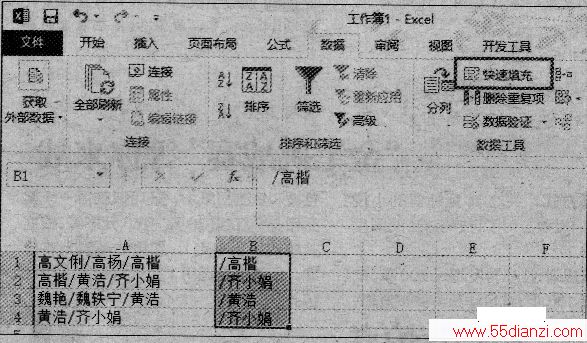 工作簿1 - Excel
文件 开始 插入 页面布局 公式 数据 审阅 视图 开发工具
获取
外部数据
全部刷新
连接
属性
编辑链接
连接
排序
筛选
清除
重新应用
高级
排序和筛选
分列
快速填充
删除重复项
数据验证
数据工具
B1 fx /高楷
A B C D E F
1 高文俐/高杨/高楷 /高楷
2 高楷/黄浩/齐小娟 /齐小娟
3 魏艳/魏轶宁/黄浩 /黄浩
4 黄浩/齐小娟 /齐小娟
www.55dianzi.com